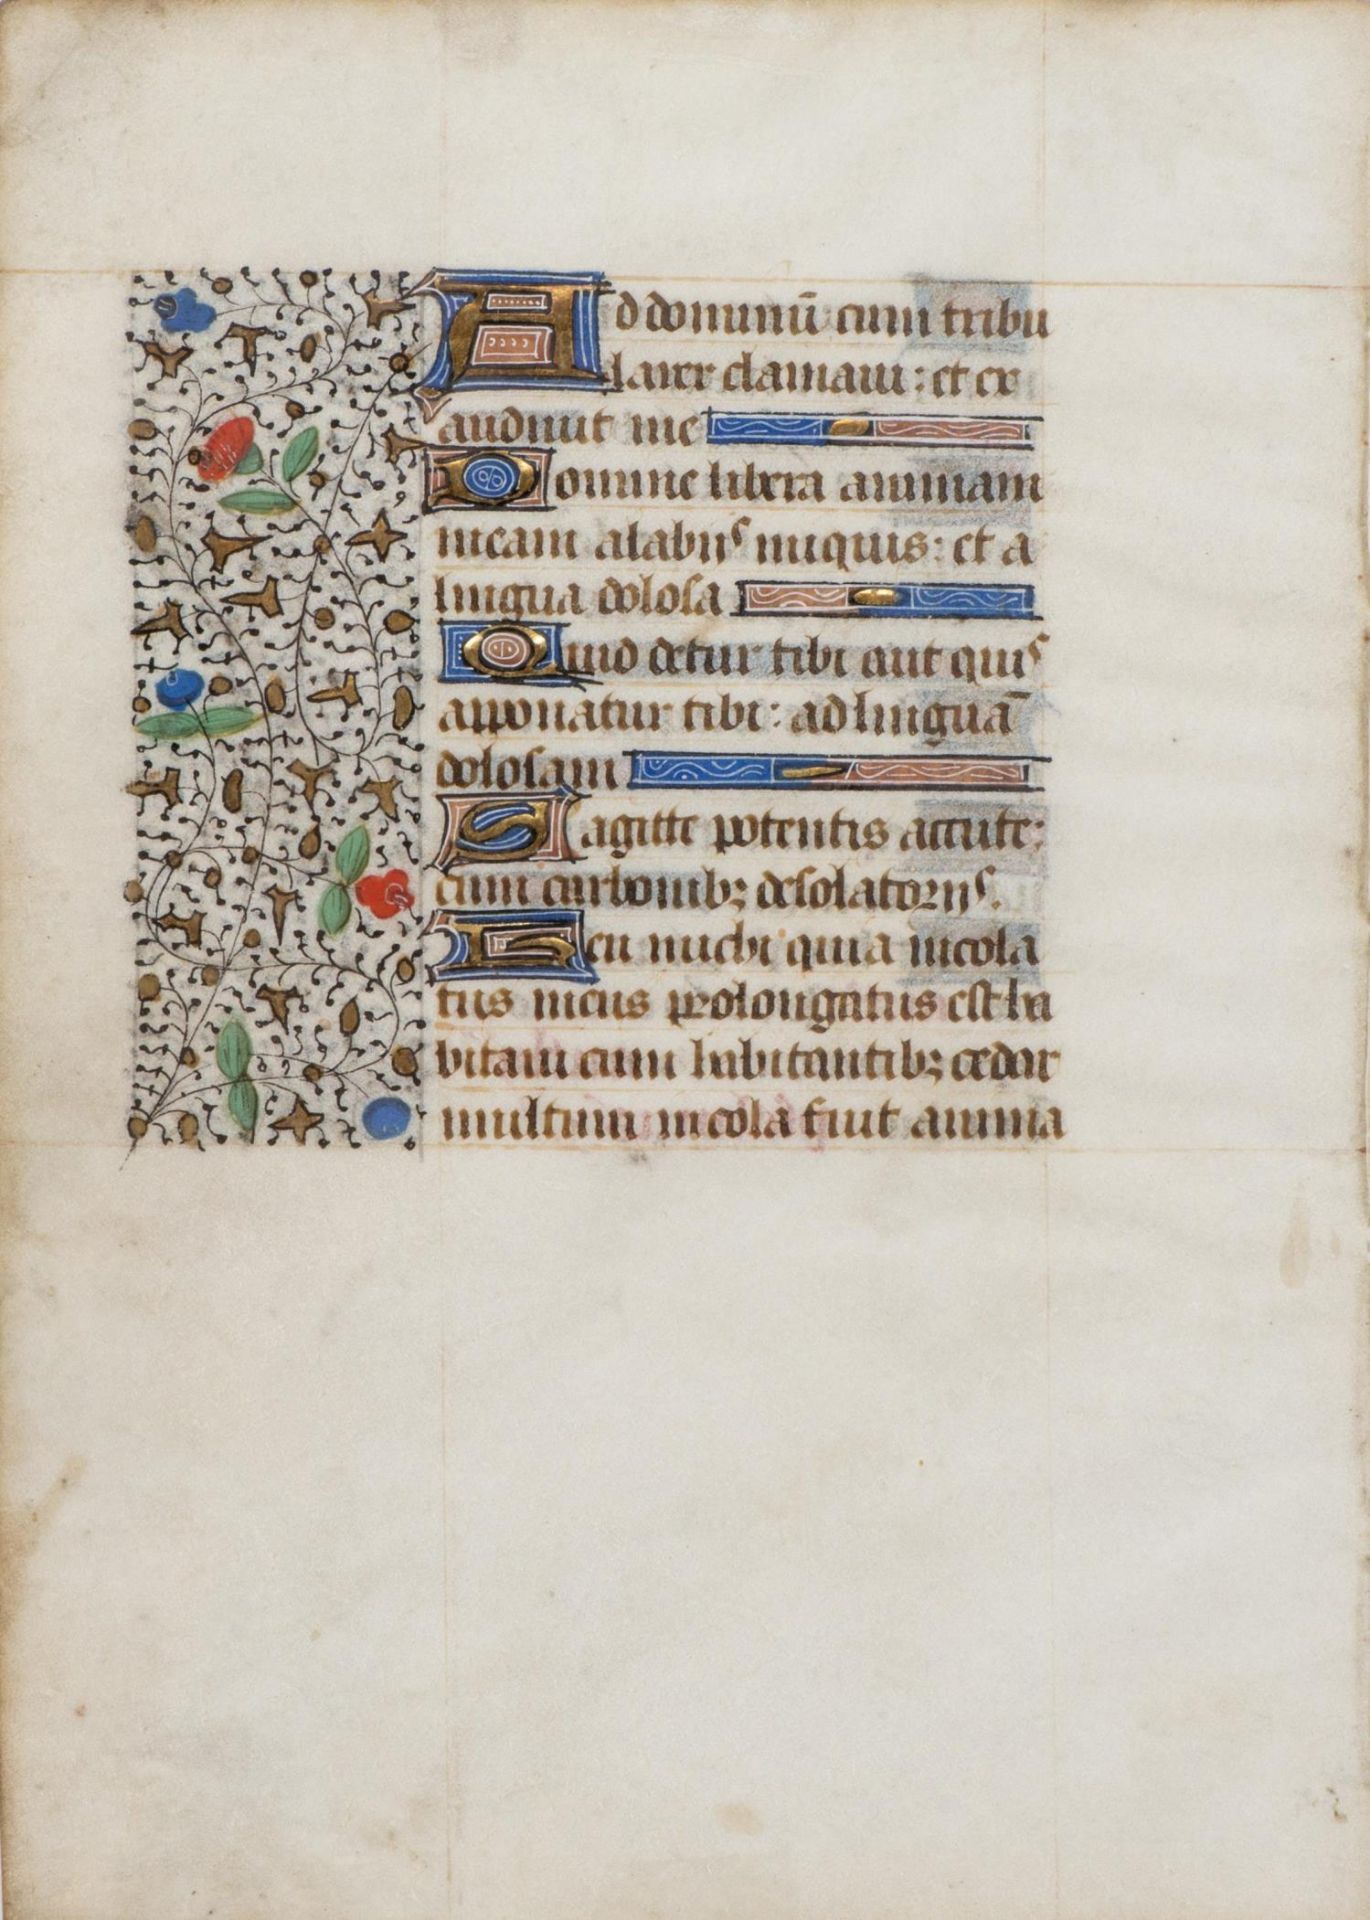 Ad dominū cum tribu
larer clamaui: et ex
audiuit me
Domine libera animam
meam a labiis iniquis: et a
lingua dolosa
Quid detur tibi aut quis
apponatur tibi: ad linguā
dolosam
Sagitte potentis accute:
cum carbonibꝫ desolatoriis.
Heu michi quia incola
tus meus prolongatus est ha
bitaui cum habitantibꝫ cedar
multum incola fuit anima